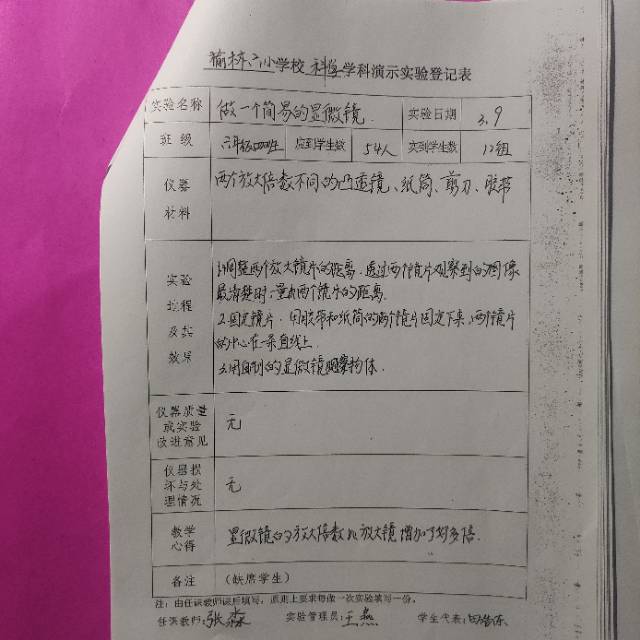 榆林六小学校 科学学科演示实验登记表
实验名称 做一个简易的显微镜 实验日期 3.9
班级 应到学生数 54人 实到学生数 12组
仪器材料 两个放大倍数不同的凸透镜、纸筒、剪刀、胶带
实验过程及其效果 1.调整两个放大镜片的距离.透过两个镜片观察到的图像
最清楚时,量出两个镜片的距离.
2.固定镜片.用胶带和纸筒的两个镜片固定下来,两个镜片
的中心在一条直线上.
3.用自制的显微镜观察物体.
仪器质量或实验改进意见 无
仪器损坏与处理情况 无
教学心得 显微镜的放大倍数比放大镜增加了好多倍.
备注 (缺席学生)
注:由任课教师课后填写,原则上要求每做一次实验填写一份。
任课教师:张淼 实验管理员:王燕 学生代表: